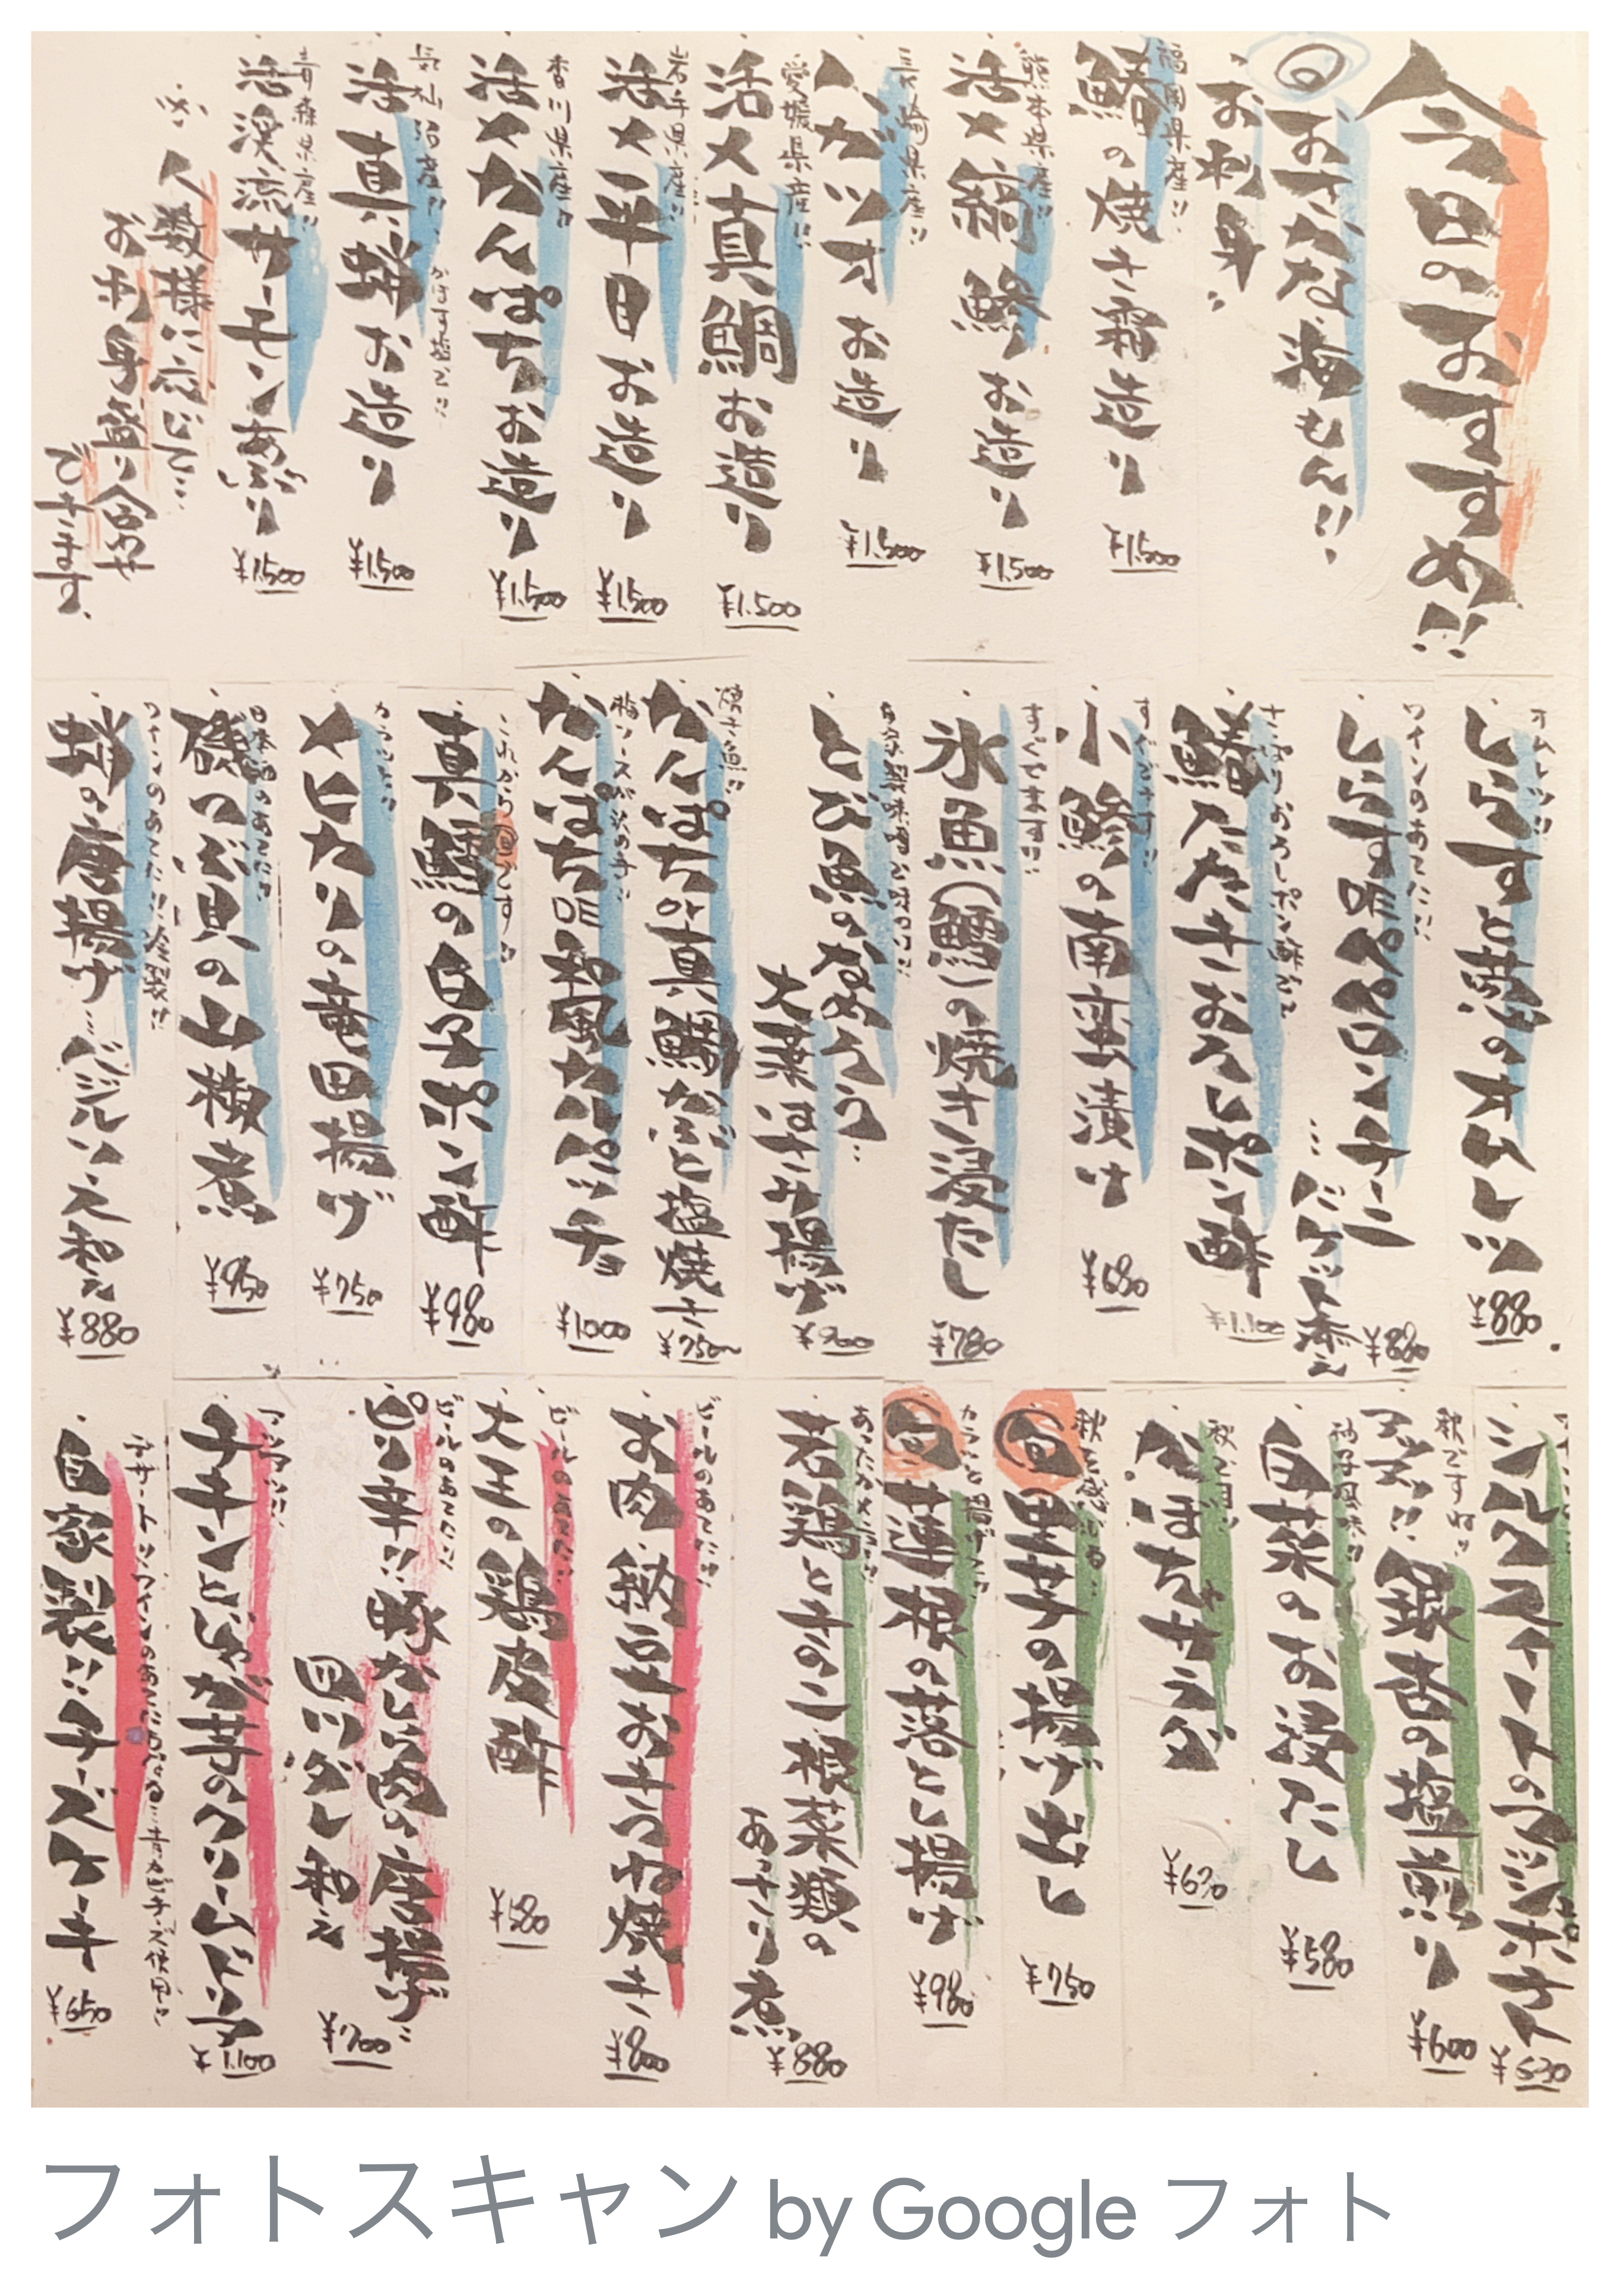 今日のおすすめ!!
旬おさかな海もん!!
お刺身
福岡県産!!
鰆の焼き霜造り ¥1.500
熊本県産!!
活〆縞鯵お造り ¥1.500
長崎県産!!
ハガツオお造り ¥1.500
愛媛県産!!
活〆真鯛お造り ¥1.500
岩手県産!!
活〆平目お造り ¥1.500
香川県産!!
活〆かんぱちお造り ¥1.500
気仙沼産!!
活真蛸お造り ¥1.500
青森県産!!
活渓流サーモン炙り ¥1.500
人数様に応じて…
お刺身盛り合わせ
できます。
オムレツ!!
しらすと葱のオムレツ ¥880
ワインのあてに!!
しらすDEペペロンチーニ
…バケット添え ¥880
さっぱりおろしポン酢にて
鰆たたきおろしポン酢 ¥1.100
すぐでます!!
小鯵の南蛮漬け ¥680
すぐでます!!
氷魚(鱈)の焼き浸たし ¥780
とび魚のなめろう…
大葉はさみ揚げ ¥900
焼き魚!!
かんぱちor真鯛かぶと塩焼き ¥750~
かんぱちDE和風カルパッチョ ¥1000
これから旬です!!
真鱈の白子ポン酢 ¥980
カラッと!!
メヒカリの竜田揚げ ¥750
日本酒のあてに!!
磯つぶ貝の山椒煮 ¥950
ワインのあてに!!
蛸の唐揚げ…バジルソース和え ¥880
シルクスイートのマッシュポテト ¥630
秋ですね!!
アツアツ!!銀杏の塩煎り ¥600
柚子風味!!
白菜のお浸たし ¥580
かぼちゃサラダ ¥670
秋を感じる…
旬里芋の揚げ出し ¥750
カラッと揚げて!!
旬蓮根の落とし揚げ ¥980
若鶏ときのこ根菜類の
あっさり煮 ¥880
ビールのあてに!!
お肉納豆おきつね焼き ¥800
ビールのあてに!!
大王の鶏皮酢 ¥580
ビールのあてに!!
ピリ辛!!豚かしら肉の唐揚げ…
四川ダレ和え ¥700
アツアツ!!
チキンとじゃが芋のクリームドリア ¥1.100
デザート!!ワインのあてにもなる…青カビチーズ使用!!
自家製!!チーズケーキ ¥650
フォトスキャン by Google フォト